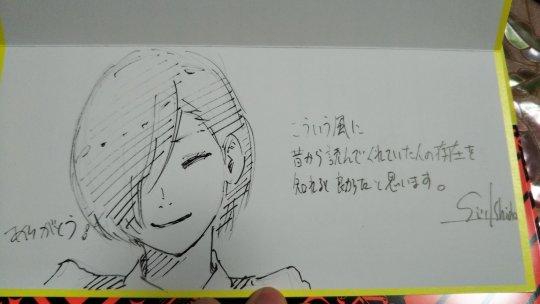 こういう風に
昔から読んでくれていた人の存在を
知れると 思います。
ありがとう